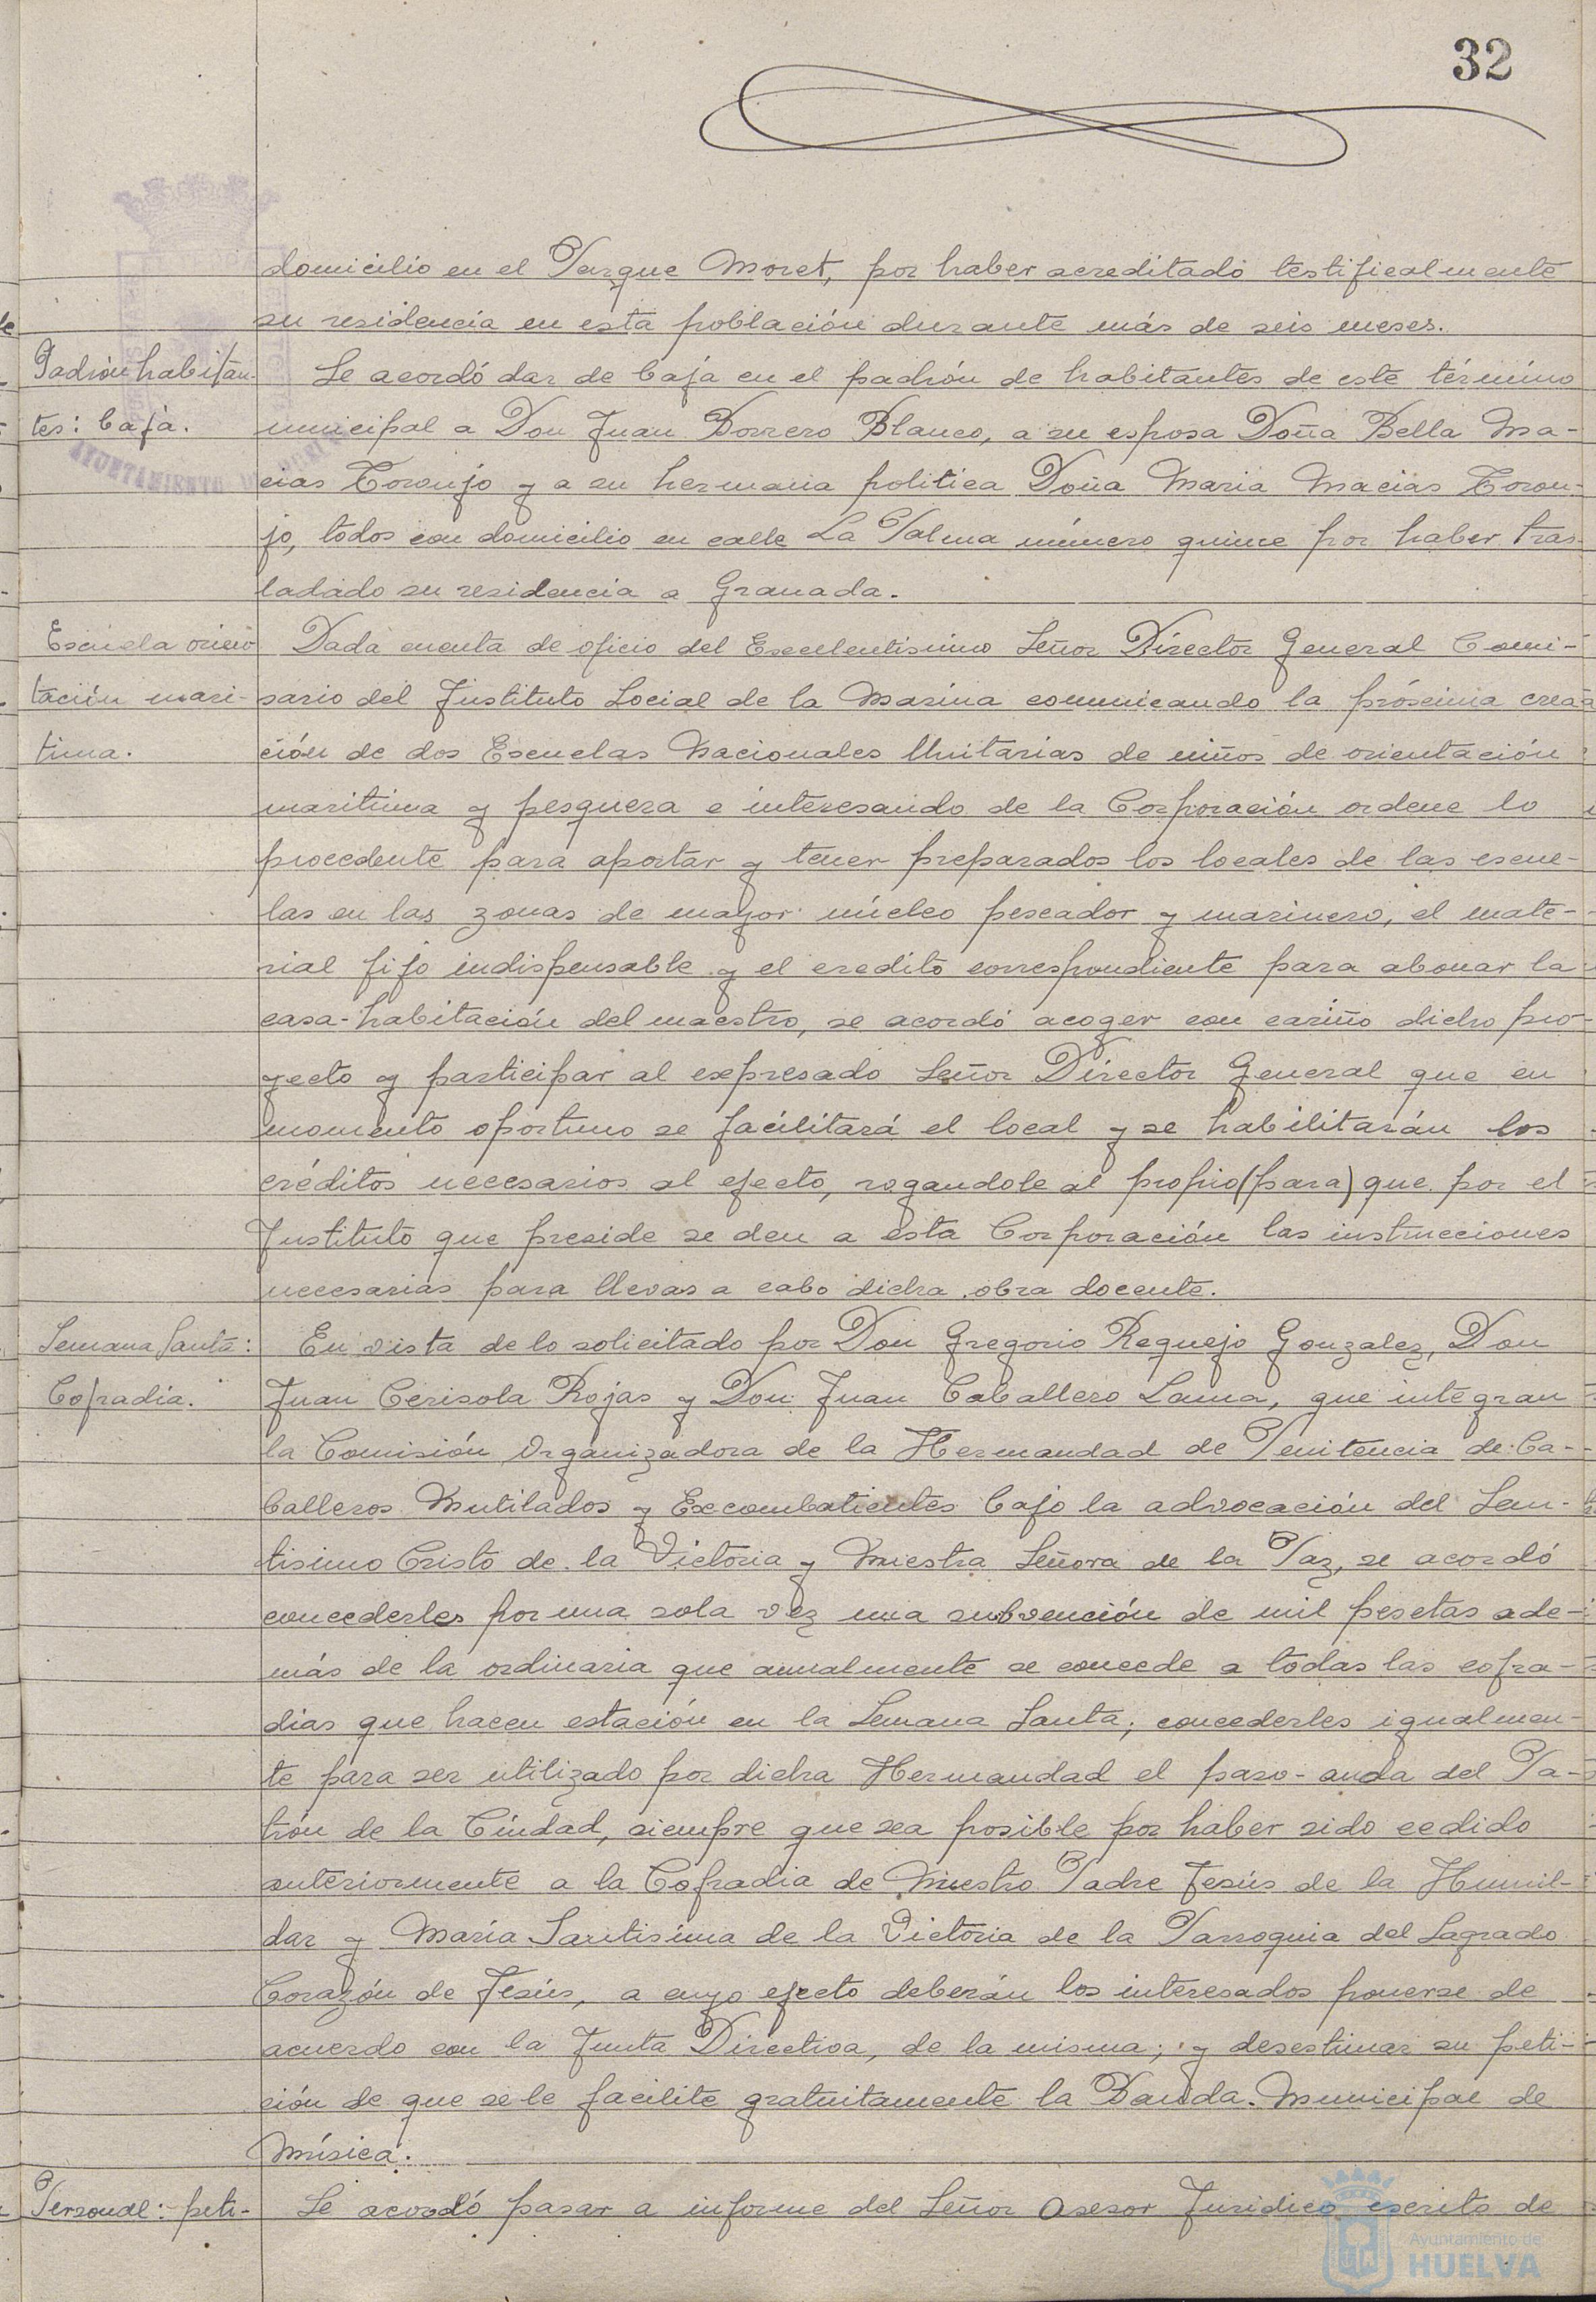 32
domicilio en el Parque Moret, por haber acreditado testificalmente
su residencia en esta población durante más de seis meses.
Padrón habitan-
tes: baja.
Se acordó dar de baja en el padrón de habitantes de este término
municipal a Don Juan Borrero Blanco, a su esposa Doña Bella Ma-
cias Toronjo y a su hermana politica Doña Maria Macias Toron-
jo, todos con domicilio en calle La Palma número quince por haber tras-
ladado su residencia a Granada.
Escuela orien-
tación mari-
tima.
Dada cuenta de oficio del Excelentisimo Señor Director General Comi-
sario del Instituto Social de la Marina comunicando la próxima crea-
ción de dos Escuelas Nacionales Unitarias de niños de orientación
maritima y pesquera e interesando de la Corporación ordene lo
procedente para aportar y tener preparados los locales de las escue-
las en las zonas de mayor núcleo pescador y marinero, el mate-
rial fijo indispensable y el credito correspondiente para abonar la
casa-habitación del maestro, se acordó acoger con cariño dicho pro-
yecto y participar al expresado Señor Director General que en
momento oportuno se facilitará el local y se habilitarán los
créditos necesarios al efecto, rogandole al propio (para) que por el
Instituto que preside se den a esta Corporación las instrucciones
necesarias para llevas a cabo dicha obra docente.
Semana Santa:
Cofradia.
En vista de lo solicitado por Don Gregorio Requejo Gonzalez, Don
Juan Cerisola Rojas y Don Juan Caballero Lama, que integran
la Comisión Organizadora de la Hermandad de Penitencia de Ca-
balleros Mutilados y Excombatientes bajo la advocación del San-
tisimo Cristo de la Victoria y Nuestra Señora de la Paz, se acordó
concederles por una sola vez una subvención de mil pesetas ade-
más de la ordinaria que anualmente se concede a todas las cofra-
dias que hacen estación en la Semana Santa; concederles igualmen-
te para ser utilizado por dicha Hermandad el paso-anda del Pa-
trón de la Ciudad, siempre que sea posible por haber sido cedido
anteriormente a la Cofradia de Nuestro Padre Jesús de la Humil-
dar y María Santisima de la Victoria de la Parroquia del Sagrado
Corazón de Jesús, a cuyo efecto deberán los interesados ponerse de
acuerdo con la Junta Directiva, de la misma; y desestimar su peti-
ción de que se le facilite gratuitamente la Banda Municipal de
Música.
Personal: peti-
Se acordó pasar a informe del Señor Asesor Juridico escrito de
AYUNTAMIENTO DE HUELVA
Ayuntamiento de
HUELVA